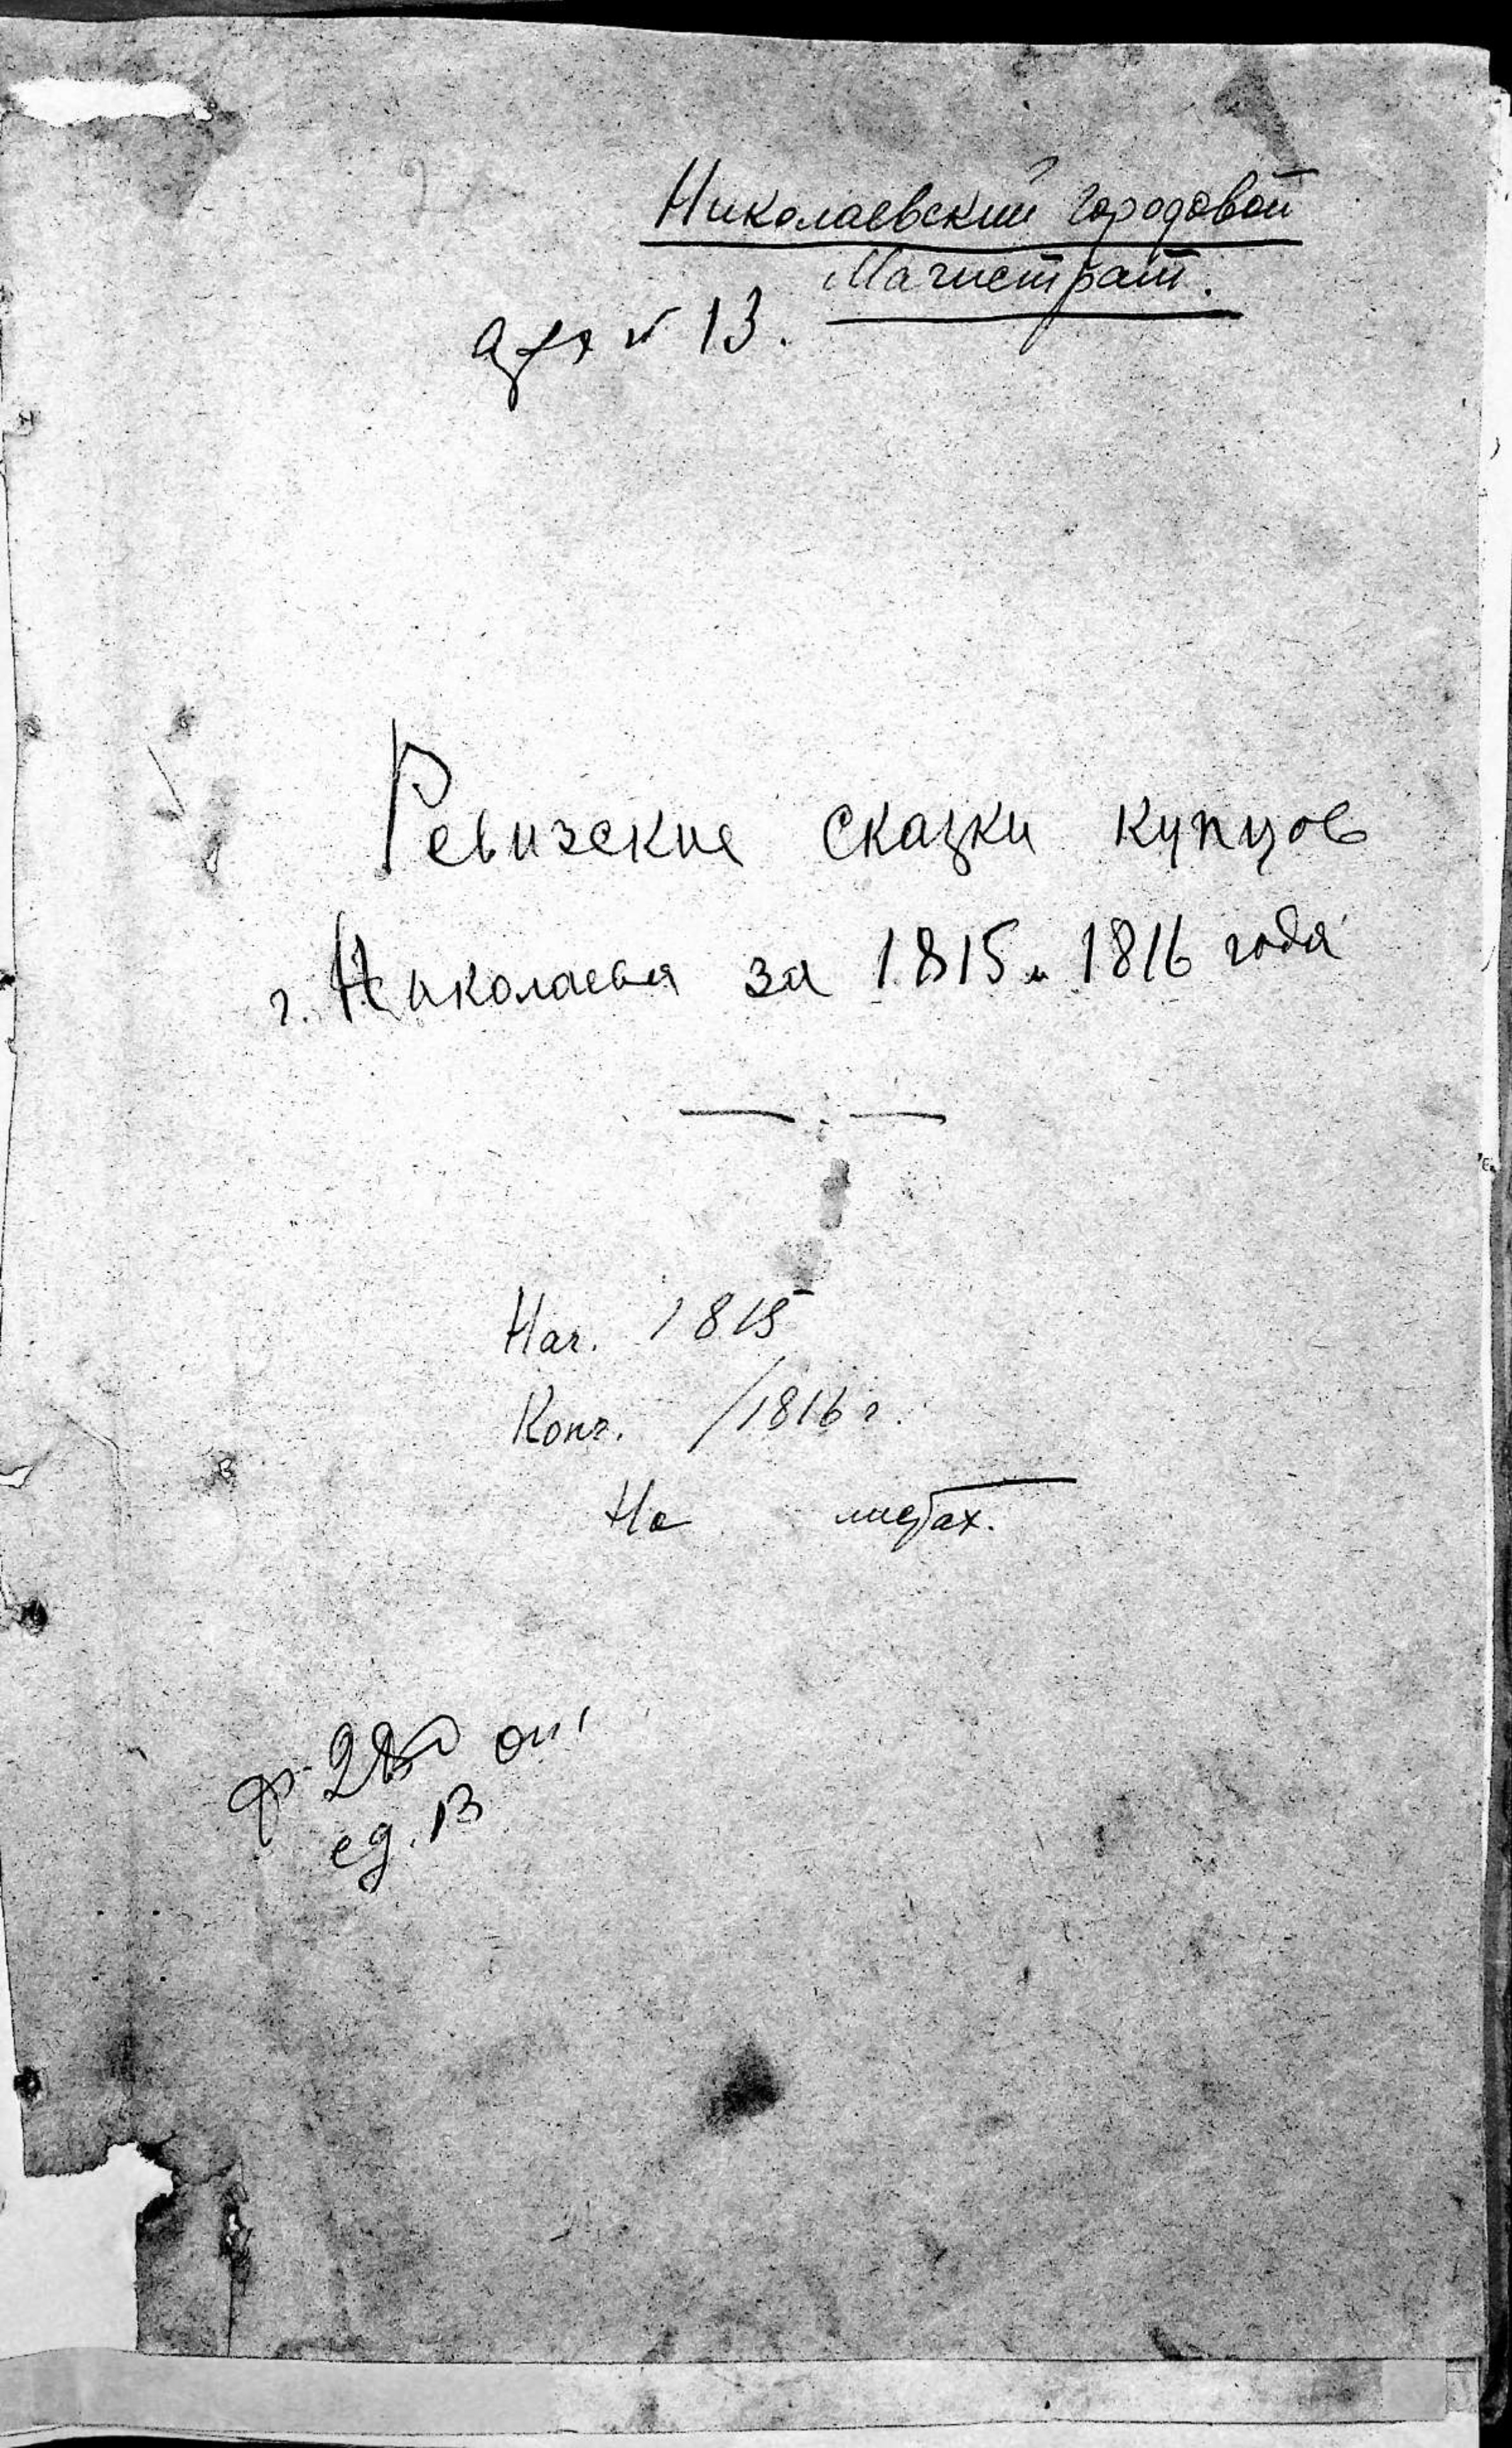 Николаевский городовой
Магистрат.
арх № 13.
Ревизские сказки купцов
г. Николаева за 1815 и 1816 года
Нач. 1815
Конч. 1816 г.
На листах.
ф. оп 1
ед. 13